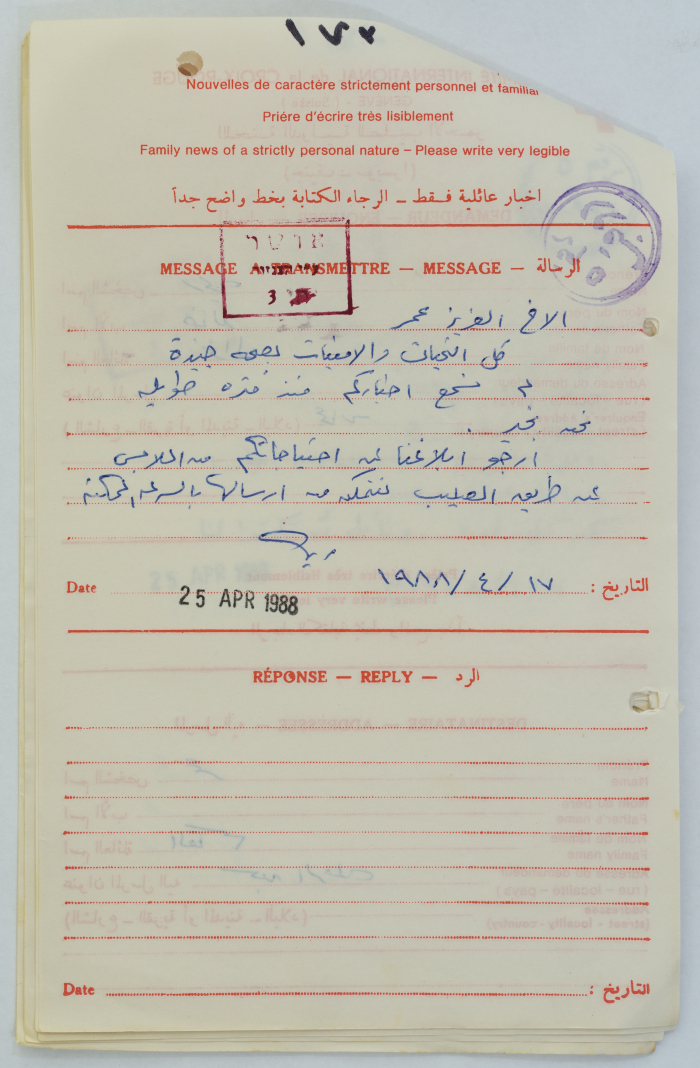 ١٧٠
Nouvelles de caractère strictement personnel et familial
Prière d'écrire très lisiblement
Family news of a strictly personal nature – Please write very legible
اخبار عائلية فـقـط ــ الرجاء الكتابة بخط واضح جداً
MESSAGE A TRANSMETTRE — MESSAGE — الرسالة
الاخ العزيز عمر
كل التحيات والامنيات بصحه جيدة
لم نسمع اخباركم منذ فتره طويله
نحن بخير .
ارجو ابلاغنا عن احتياجاتكم من الملابس
عن طريق الصليب لنتمكن من ارسالها بالسرعه الممكنة
Date ١٩٨٨/٤/١٧ التاريخ :
25 APR 1988
RÉPONSE — REPLY — الرد
Date التاريخ :